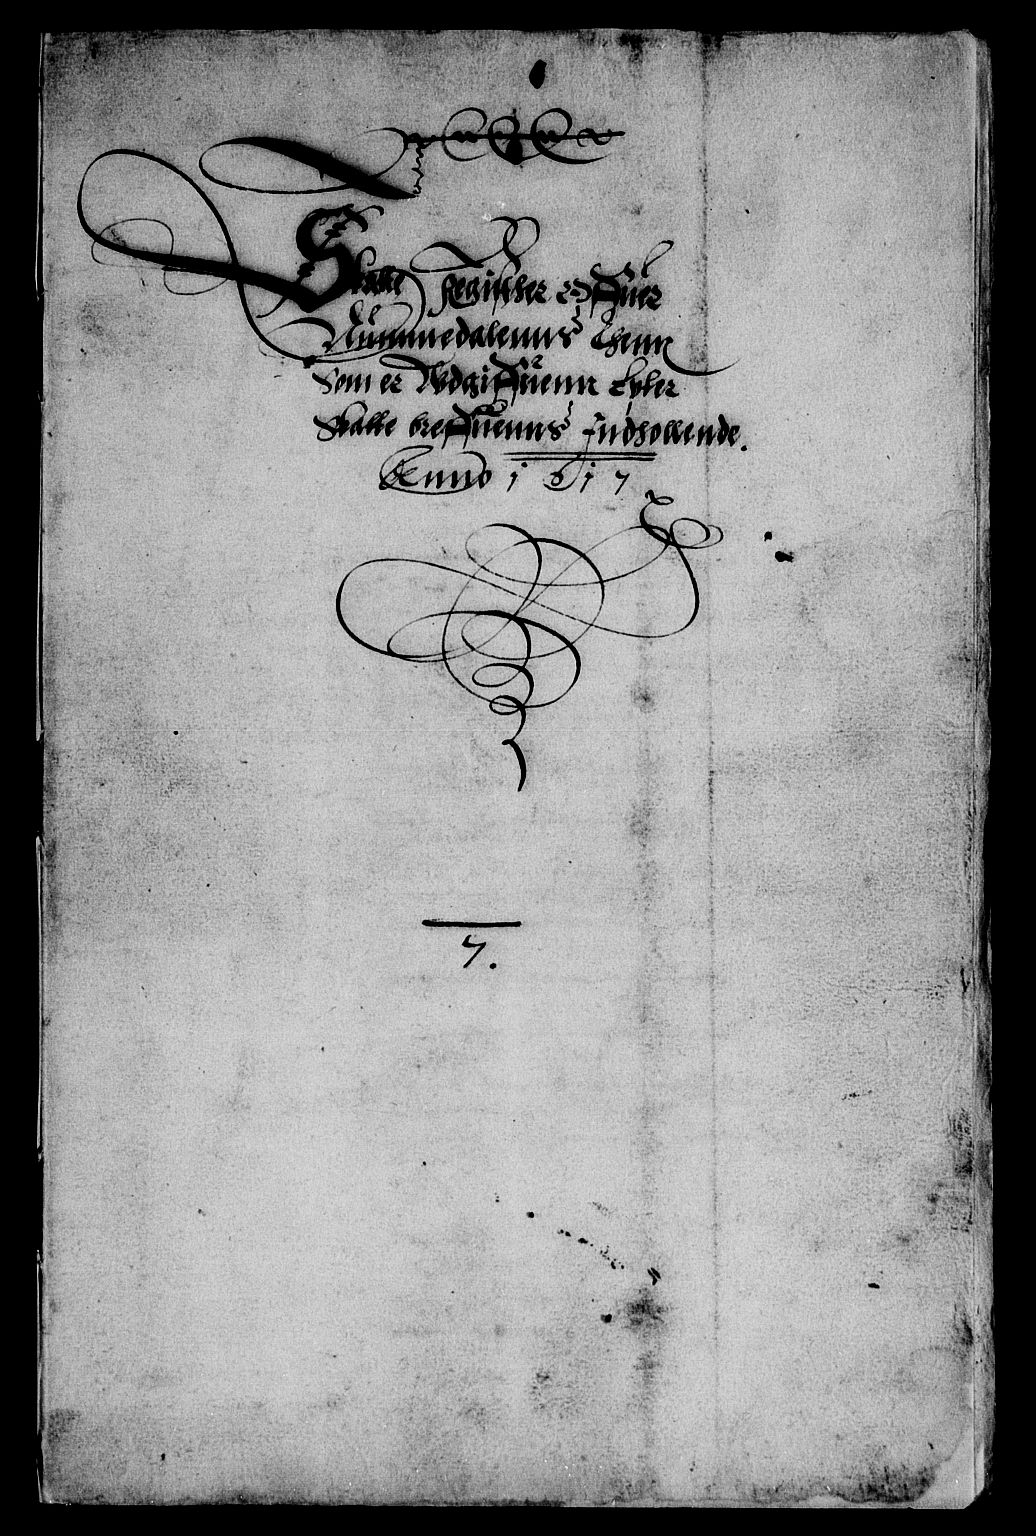 Skatte Register offuer
Nummedalenns Lhenn
Som er Vdgiffuenn epter
Skatte breffuenns Jndhollende.
Anno 1617
7.